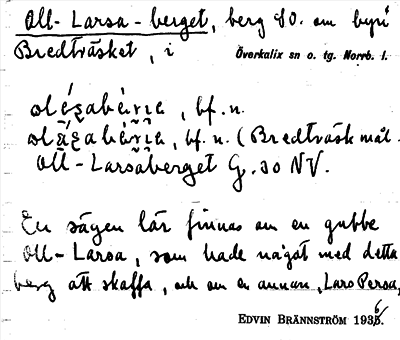 Oll-Larsa-berget, berg SO. om byn
Bredträsket, i Överkalix sn o. tg. Norrb. l.
bf. n.
bf. n. (Bredträsk mål.
Oll-Larsaberget G. so NV.
En sägen lär finnas om en gubbe
Oll-Larsa, som hade något med detta
berg att skaffa, och om en annan, Lars Persa,
EDVIN BRÄNNSTRÖM 1936.